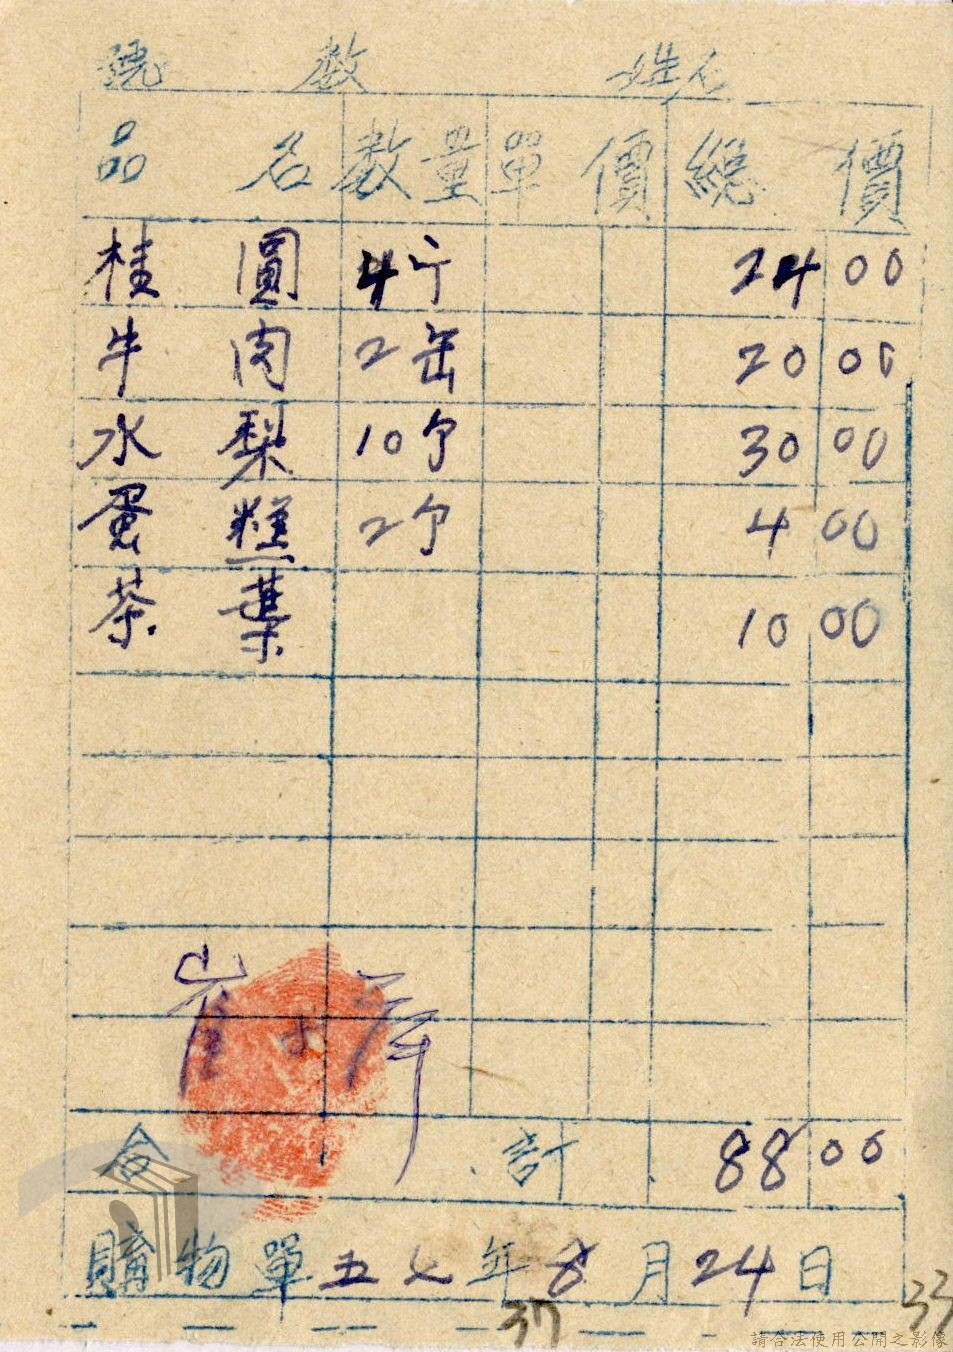 號 数 姓名
品 名 数量 單 價 總 價
桂 圓 4斤 24 00
牛 肉 2缶 20 00
水 梨 10个 30 00
蛋 糕 2个 4 00
茶 葉 10 00
崔小萍
合 計 88 00
購物單五七年8月24日
37
33
請合法使用公開之影像